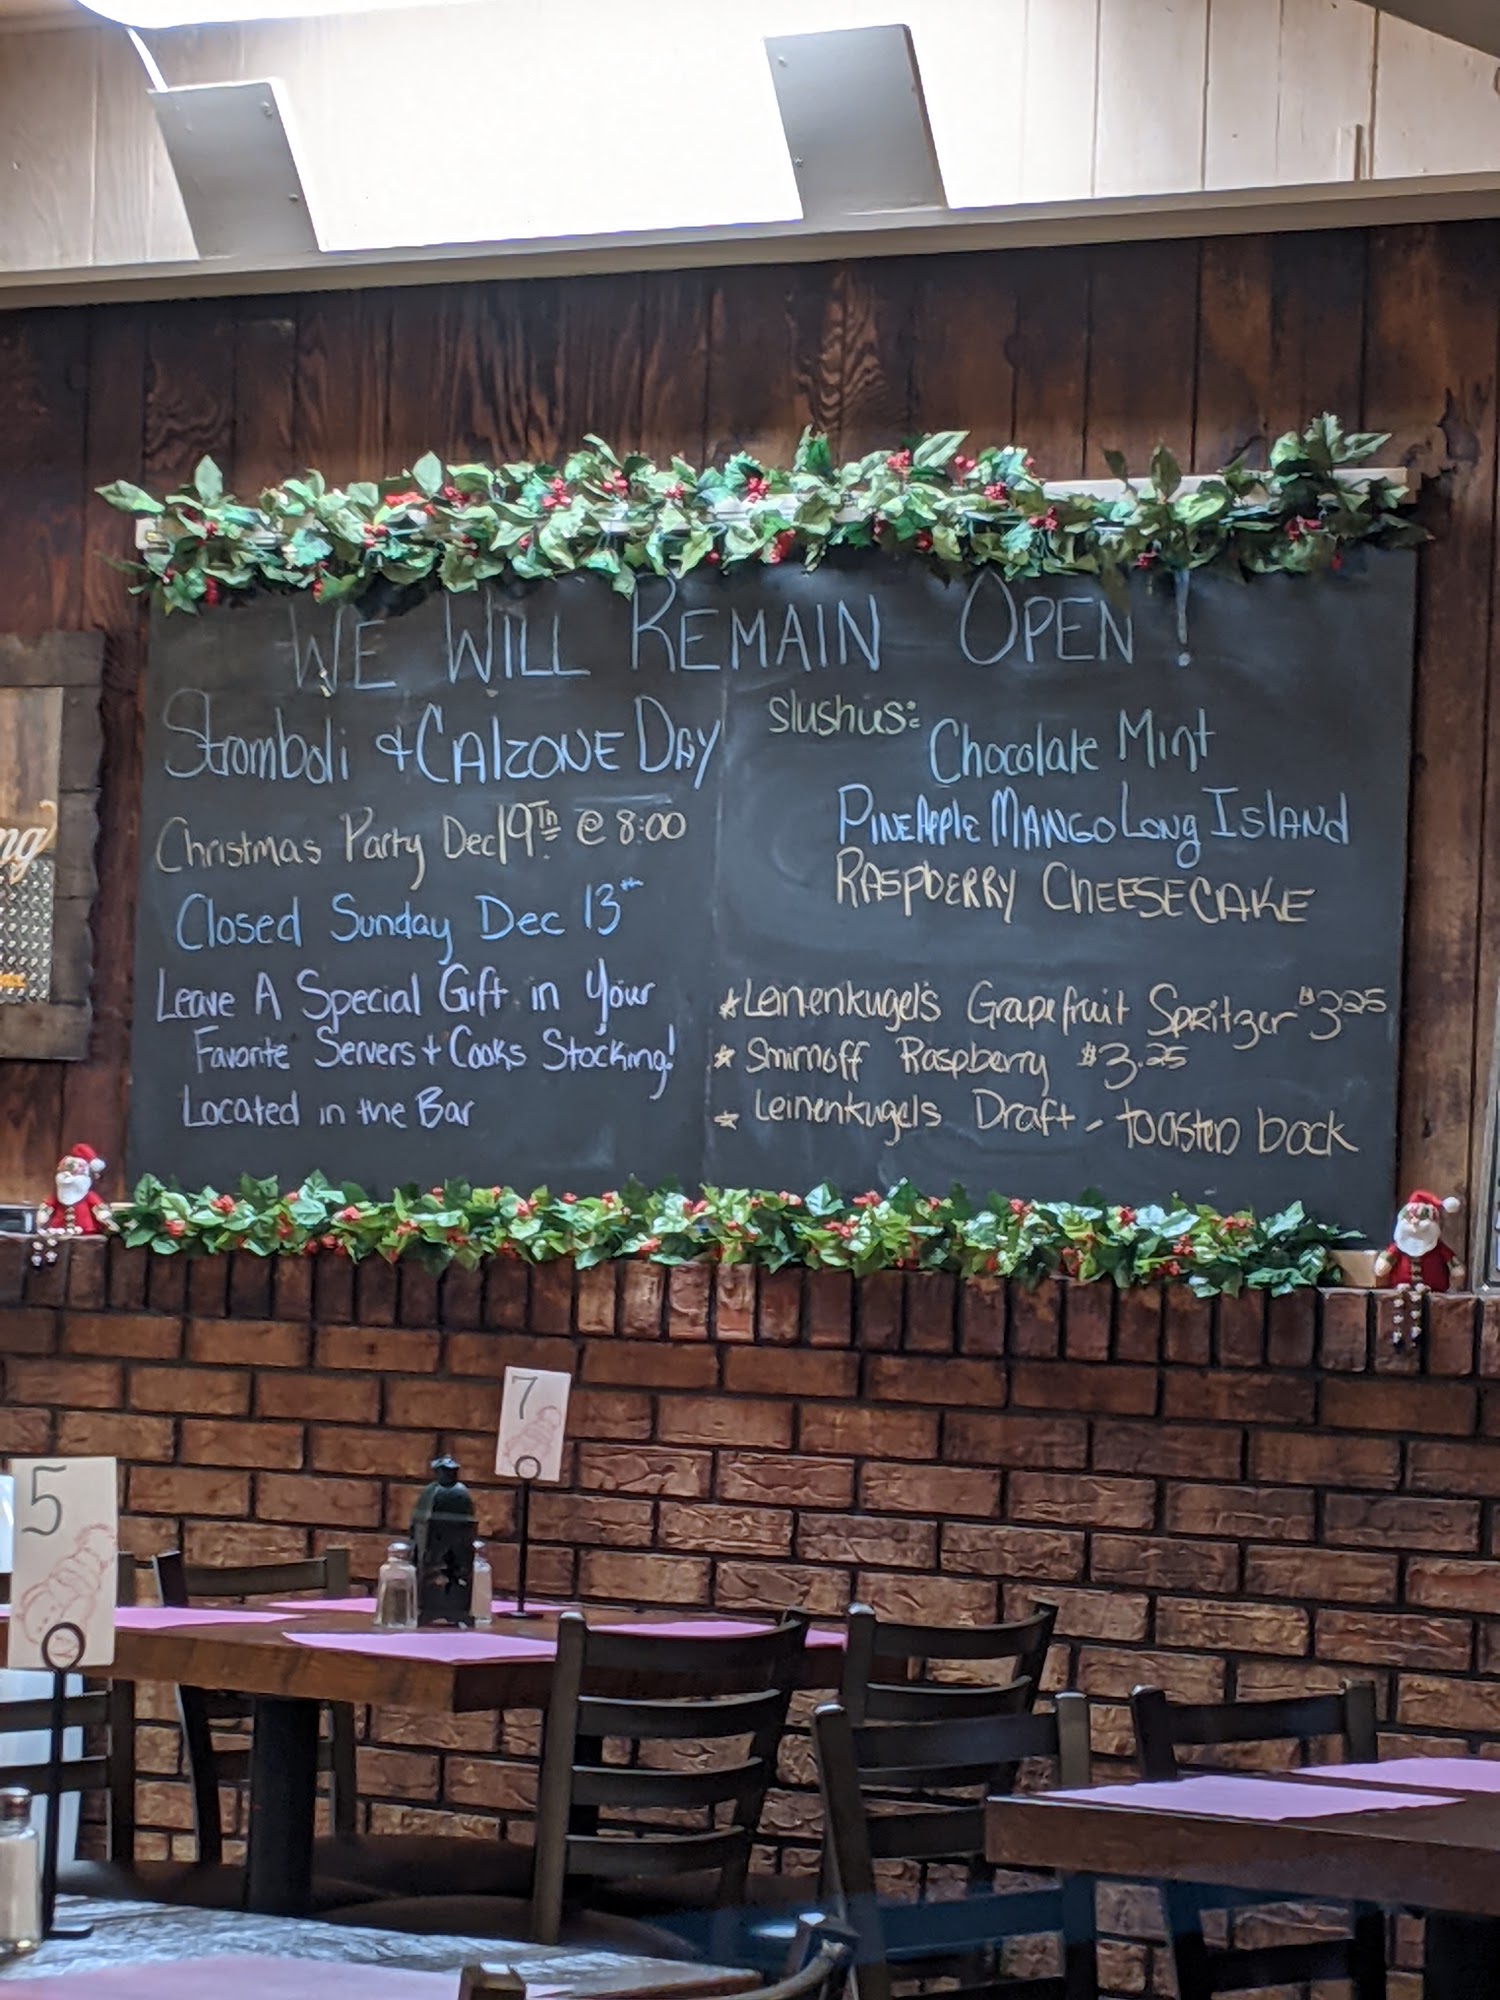 WE WILL REMAIN OPEN!
Stromboli & CALZONE DAY
Christmas Party Dec 19TH @ 8:00
Closed Sunday Dec 13th
Leave A Special Gift in Your
Favorite Servers + Cooks Stocking!
Located in the Bar
slushus:
Chocolate Mint
PINEAPPLE MANGO LONG ISLAND
RASPBERRY CHEESECAKE
* Leinenkugel's Grapefruit Spritzer $3.25
* Smirnoff Raspberry $3.25
* Leinenkugels Draft - toasted bock
7
5